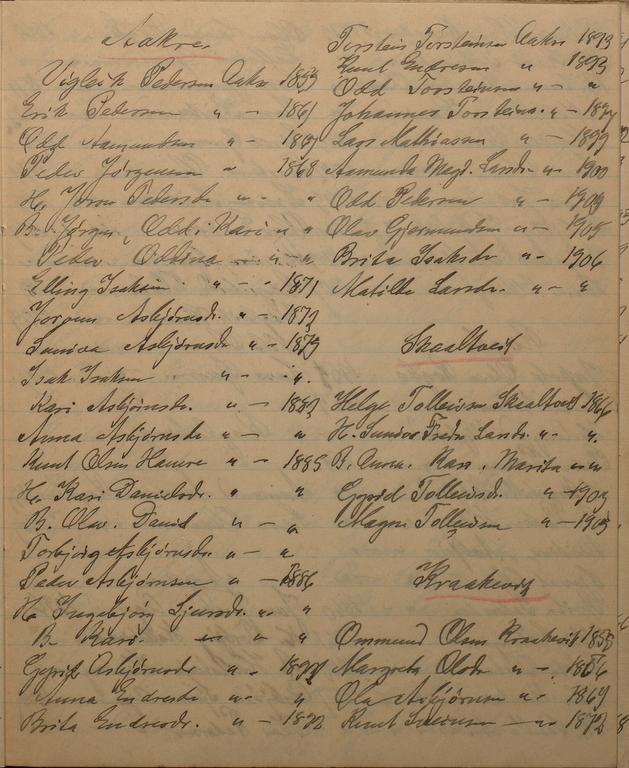 Aakre
Vigleik Pedersen Aakre 1853
Erik Pedersen " - 1861
Odd Aamundsen " -
Peder Jørgensen " 1868
H. Jørn Pedersdr " - "
B. Jørgen, Odd, Kari " "
Peder Oddina " - "
Elling Isaksen " - 1871
Jorunn Asbjørnsdr. " - 1873
Suniva Asbjørnsdr " - 1879
Isak Isaksen " - ".
Kari Asbjørnsdr. " - 1883
Anna Asbjørnsdr " - "
Knut Olsen " - 1885
H. Kari Danielsdr. " "
B. Olav. David " - "
Torbjørg Asbjørnsdr. " - "
Peder Asbjørnsen " - 1886
H. Ingebjørg Sjursdr. " "
B. Kari. " "
Asbjørnsdr ".
Anna Endresdr " "
Brita Endresdr. " - 1892
Torstein Torsteinsen Aakre 1893
Knut Endresen " 1893
Odd Torsteinsen " - "
Johannes Torsteins. " -
Lars Mathiassen " - 1899
Aamunda Magd. Larsdr. " - 1900
Odd Pedersen " - 1903
Olav Gjermundsen " - 1905
Brita Isaksdr " - 1906
Matilde Larsdr. " - "
Skaaltveit
Helge Tolleivsen Skaaltveit 1866
H. Larsdr. " - ".
B. Anna. Marita " "
Tolleivsdr. " - 1903
Magne Tolleivsen " - 1903
Kraakevik
Ommund Olsen Kraakevik
Margreta Olsdr " - 1856
Ola Asbjørnsen " - 1869
Knut - " - 1872